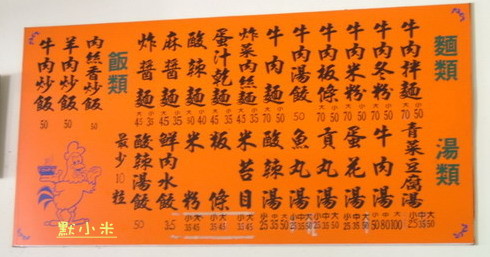 麵類
牛肉拌麵 大70 小50
牛肉冬粉 大70 小50
牛肉米粉 大70 小50
牛肉板條 大70 小50
牛肉湯餃 50
牛肉麵 大70 小50
炸菜肉絲麵 大45 小35
蛋汁乾麵 大45 小35
酸辣麵 大45 小35
麻醬麵 大45 小35
炸醬麵 大45 小35
飯類
肉絲香炒飯 50
羊肉炒飯 50
牛肉炒飯 50
湯類
青菜豆腐湯 小25 中35 大50
牛肉湯 小50 中80 大100
蛋花湯 小25 中35 大50
貢丸湯 小25 中35 大50
魚丸湯 小25 中35 大50
酸辣湯 小25 中35 大50
米苔目 小35 大45
板條 小35 大45
米粉 小35 大45
鮮肉水餃 3.5
酸辣湯餃 50
最少10粒
默小米